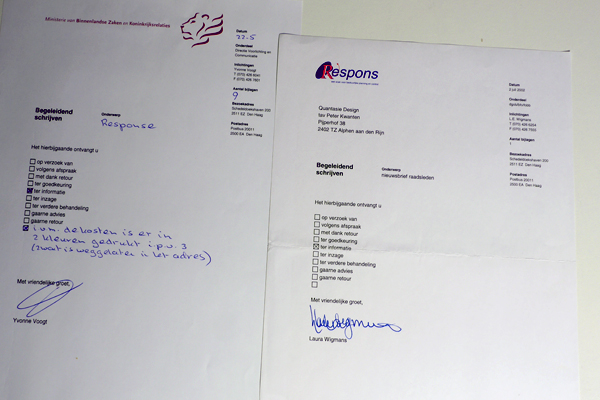 Ministerie van Binnenlandse Zaken en Koninkrijksrelaties
Datum
22-5
Onderdeel
Directie Voorlichting en
Communicatie
Inlichtingen
Yvonne Voogt
Aantal bijlagen
9
Bezoekadres
Schedeldoekshaven 200
2511 EZ Den Haag
Postadres
Postbus 20011
2500 EA Den Haag
Begeleidend
schrijven
Onderwerp
Response
Het hierbijgaande ontvangt u
op verzoek van
volgens afspraak
met dank retour
ter goedkeuring
ter informatie
ter inzage
ter verdere behandeling
gaarne advies
gaarne retour
i.v.m. de kosten is er in
2 kleuren gedrukt i.p.v. 3
(zwart is weggelaten in het adres)
Met vriendelijke groet,
Yvonne Voogt
Respons
Datum
2 juli 2002
Onderdeel
Inlichtingen
L.E. Wigmans
Aantal bijlagen
1
Bezoekadres
Schedeldoekshaven 200
2511 EZ Den Haag
Postadres
Postbus 20011
2500 EA Den Haag
Quantasie Design
tav Peter Kwanten
Pijperhof 38
2402 TZ Alphen aan den Rijn
Begeleidend
schrijven
Onderwerp
nieuwsbrief raadsleden
Het hierbijgaande ontvangt u
op verzoek van
volgens afspraak
met dank retour
ter goedkeuring
ter informatie
ter inzage
ter verdere behandeling
gaarne advies
gaarne retour
Met vriendelijke groet,
Laura Wigmans